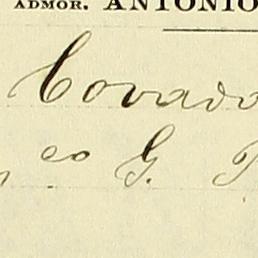 ADMOR. ANTONIO
Covado
co G.